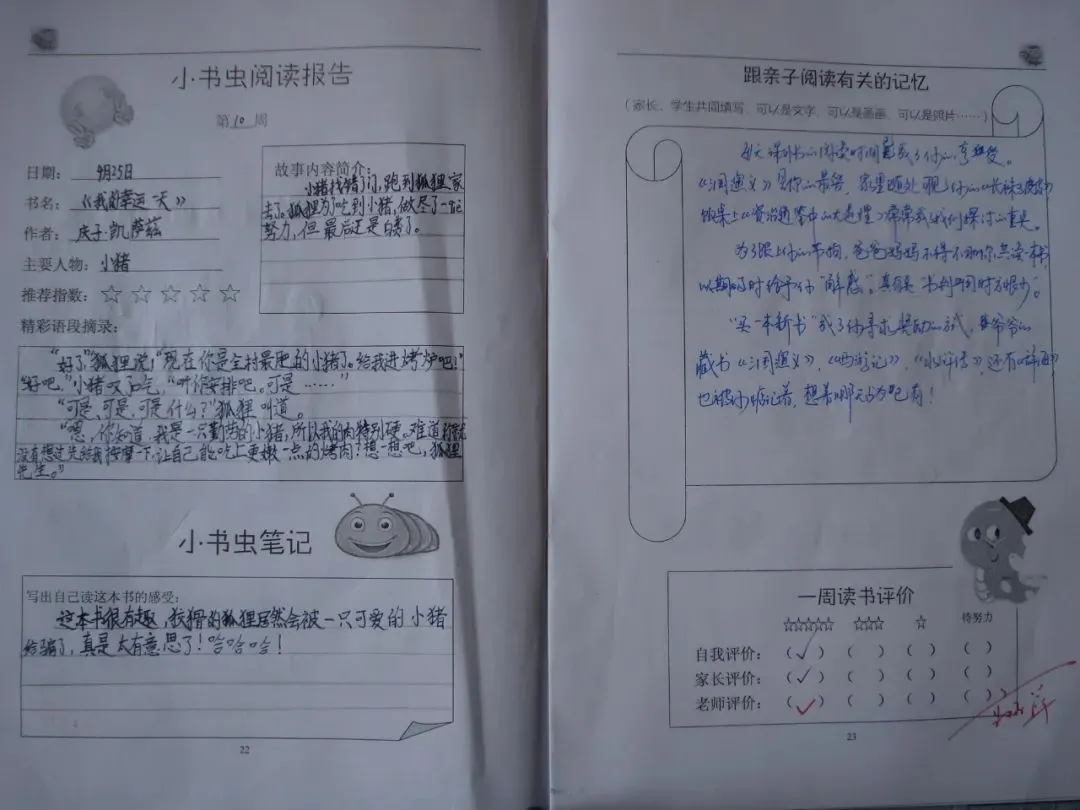 小书虫阅读报告
第10周
日期：9月25日
书名：《我的幸运一天》
作者：庆子·凯萨兹
主要人物：小猪
推荐指数：☆ ☆ ☆ ☆ ☆
故事内容简介：
小猪找错了门，跑到狐狸家
去了。狐狸为了吃到小猪，做尽了一切
努力，但最后还是白费了。
精彩语段摘录：
“好了”狐狸说！“现在你是全村最肥的小猪了。给我进烤炉吧！”
“好吧。”小猪叹了口气，“听你安排吧。可是……”
“可是，可是，可是什么？”狐狸叫道。
“恩，你知道，我是一只勤劳的小猪，所以我的肉特别硬。难道你就
没有想过先给我按摩一下，让自己能吃上更嫩一点的烤肉？想一想吧，狐狸
先生。”
小书虫笔记
写出自己读这本书的感受：
这本书很有趣，狡猾的狐狸居然会被一只可爱的小猪
给骗了，真是太有意思了！哈哈哈！
22
跟亲子阅读有关的记忆
（家长、学生共同填写，可以是文字，可以是画画，可以是照片……）
每天课外书的阅读时间是我了你的享受。
《三国演义》是你的最爱，家里随处
饭桌上《资治通鉴中的大道理》常常
为了跟上你的节拍，爸爸妈妈不得不和你共读一本书，
以期及时给予你“解惑”。真有“书到用时方恨少”。
“买一本新书”成了你寻求奖励的方式，爷爷的
藏书《三国演义》，《西游记》，《水浒传》还有
也被你惦记着，想着哪天占为己有！
一周读书评价
☆☆☆☆☆ ☆☆☆ ☆ 待努力
自我评价：（✓）（ ）（ ）（ ）
家长评价：（✓）（ ）（ ）（ ）
老师评价：（✓）（ ）（ ）（ ）
23